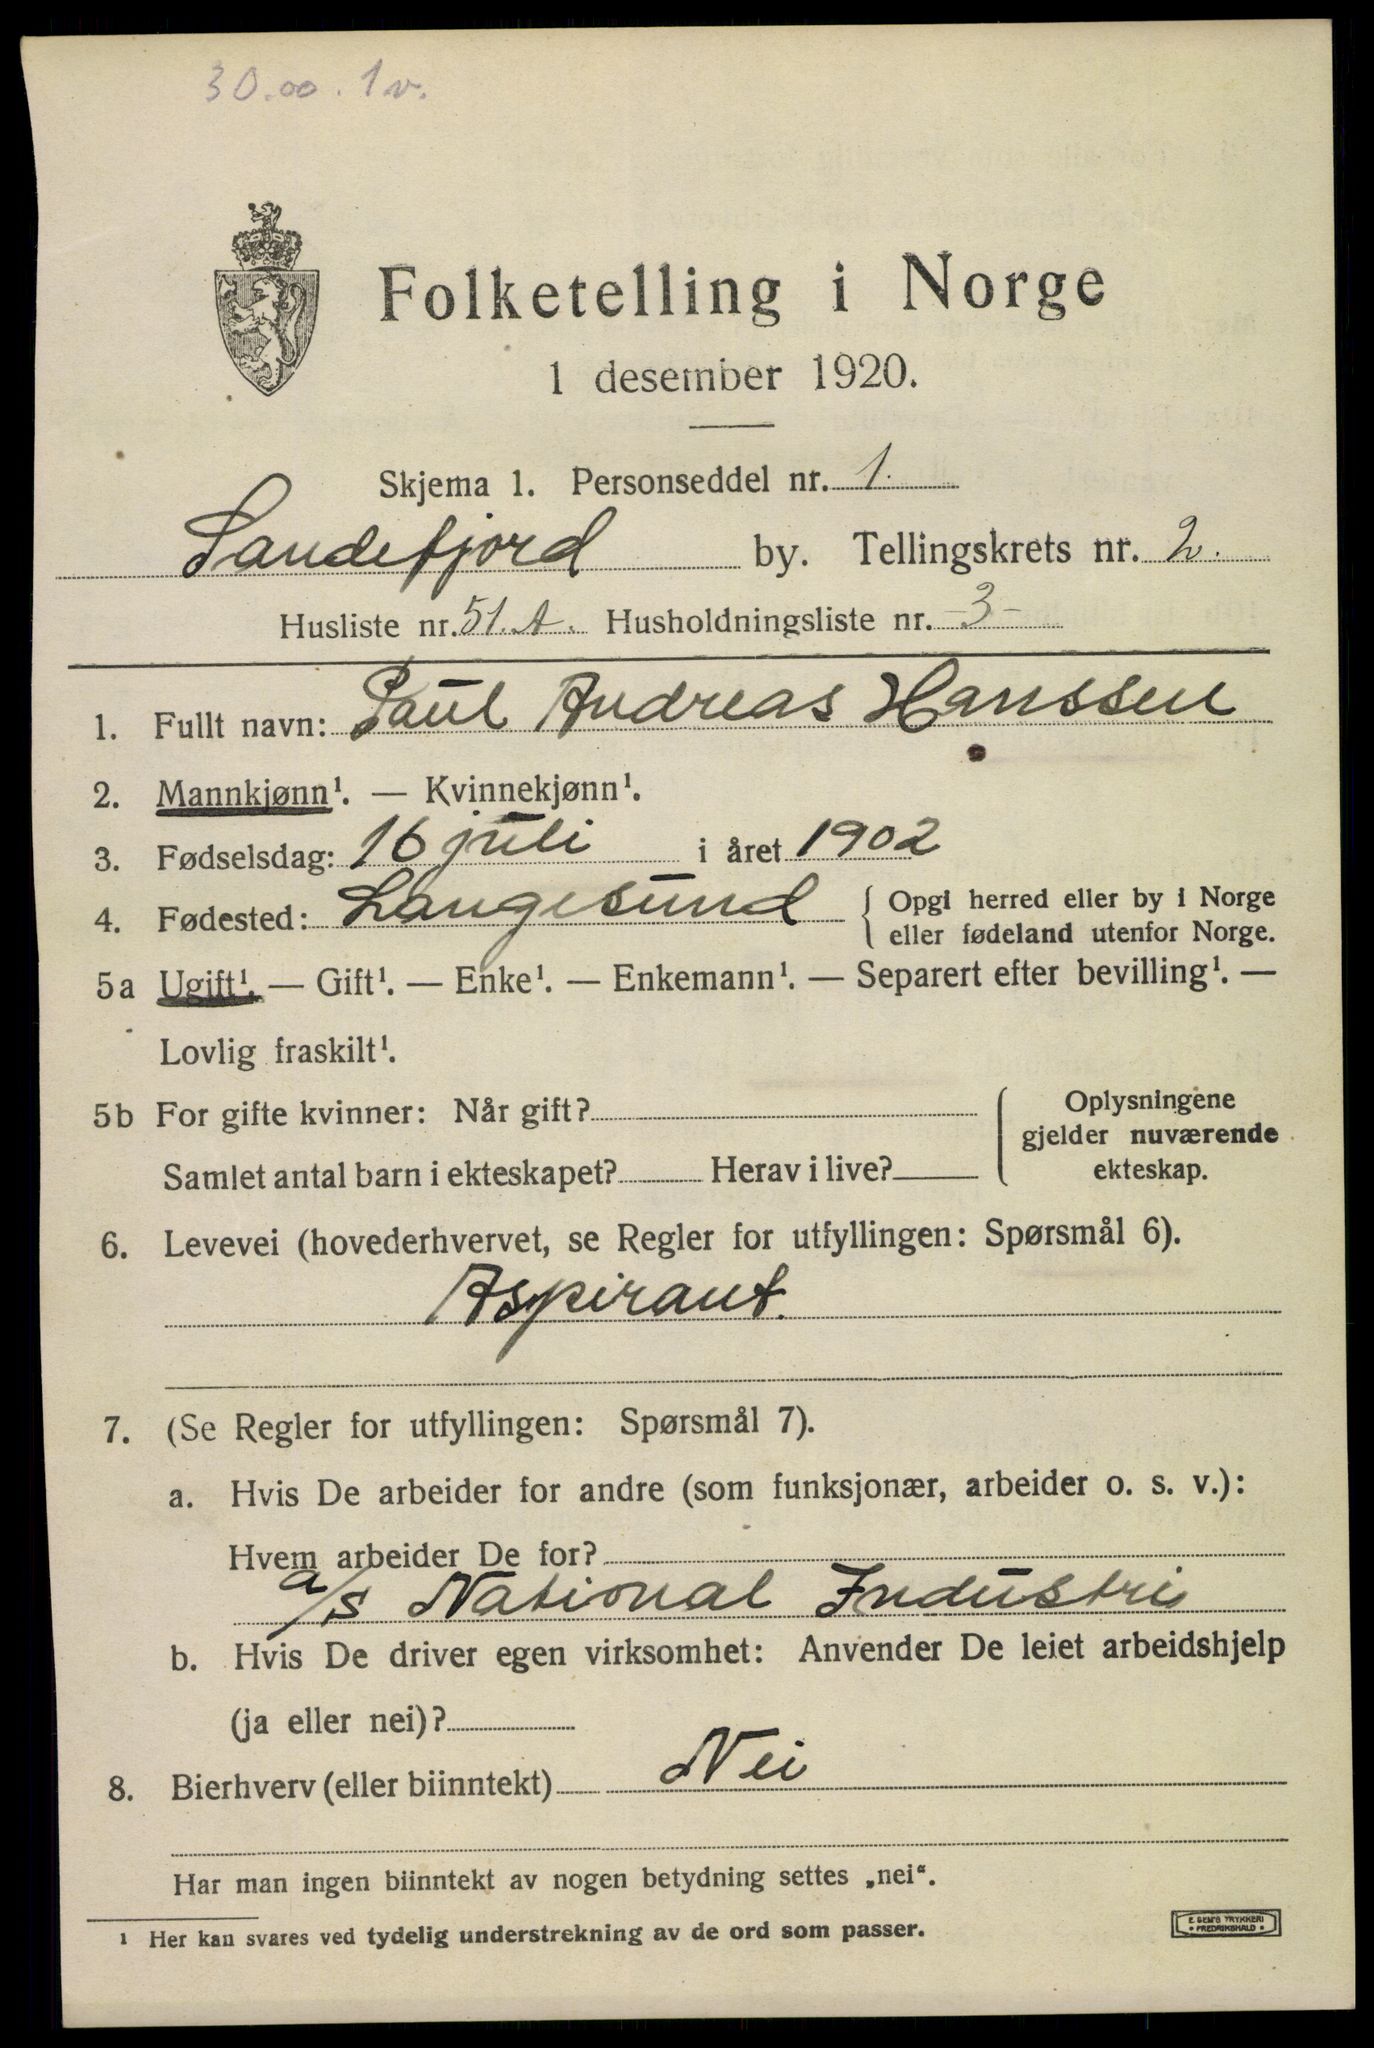 30.00. 1v.
Folketelling i Norge
1 desember 1920.
Skjema 1. Personseddel nr. 1.
Sandefjord by. Tellingskrets nr. 2.
Husliste nr. 51. A. Husholdningsliste nr. -3-
1. Fullt navn: Paul Andreas Hanssen
2. Mannkjønn¹. — Kvinnekjønn¹.
3. Fødselsdag: 16 juli i året 1902
4. Fødested: Langesund { Opgi herred eller by i Norge
eller fødeland utenfor Norge.
5a Ugift¹. — Gift¹. — Enke¹. — Enkemann¹. — Separert efter bevilling¹. —
Lovlig fraskilt¹.
5b For gifte kvinner: Når gift?
Oplysningene
gjelder nuværende
ekteskap.
Samlet antal barn i ekteskapet? Herav i live?
6. Levevei (hovederhvervet, se Regler for utfyllingen: Spørsmål 6).
Aspirant.
7. (Se Regler for utfyllingen: Spørsmål 7).
a. Hvis De arbeider for andre (som funksjonær, arbeider o. s. v.):
Hvem arbeider De for?
a/s National Industri
b. Hvis De driver egen virksomhet: Anvender De leiet arbeidshjelp
(ja eller nei)?
8. Bierhverv (eller biinntekt) Nei
Har man ingen biinntekt av nogen betydning settes „nei“.
¹ Her kan svares ved tydelig understrekning av de ord som passer.
E. SEM'S TRYKKERI
• FREDRIKSHALD •